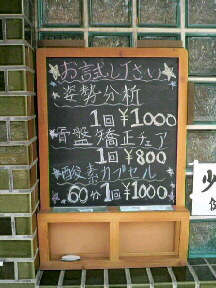 ☆お試し下さい☆
姿勢分析
1回¥1000
骨盤矯正チェア
1回¥800
☆酸素カプセル
60分1回¥1000☆
少